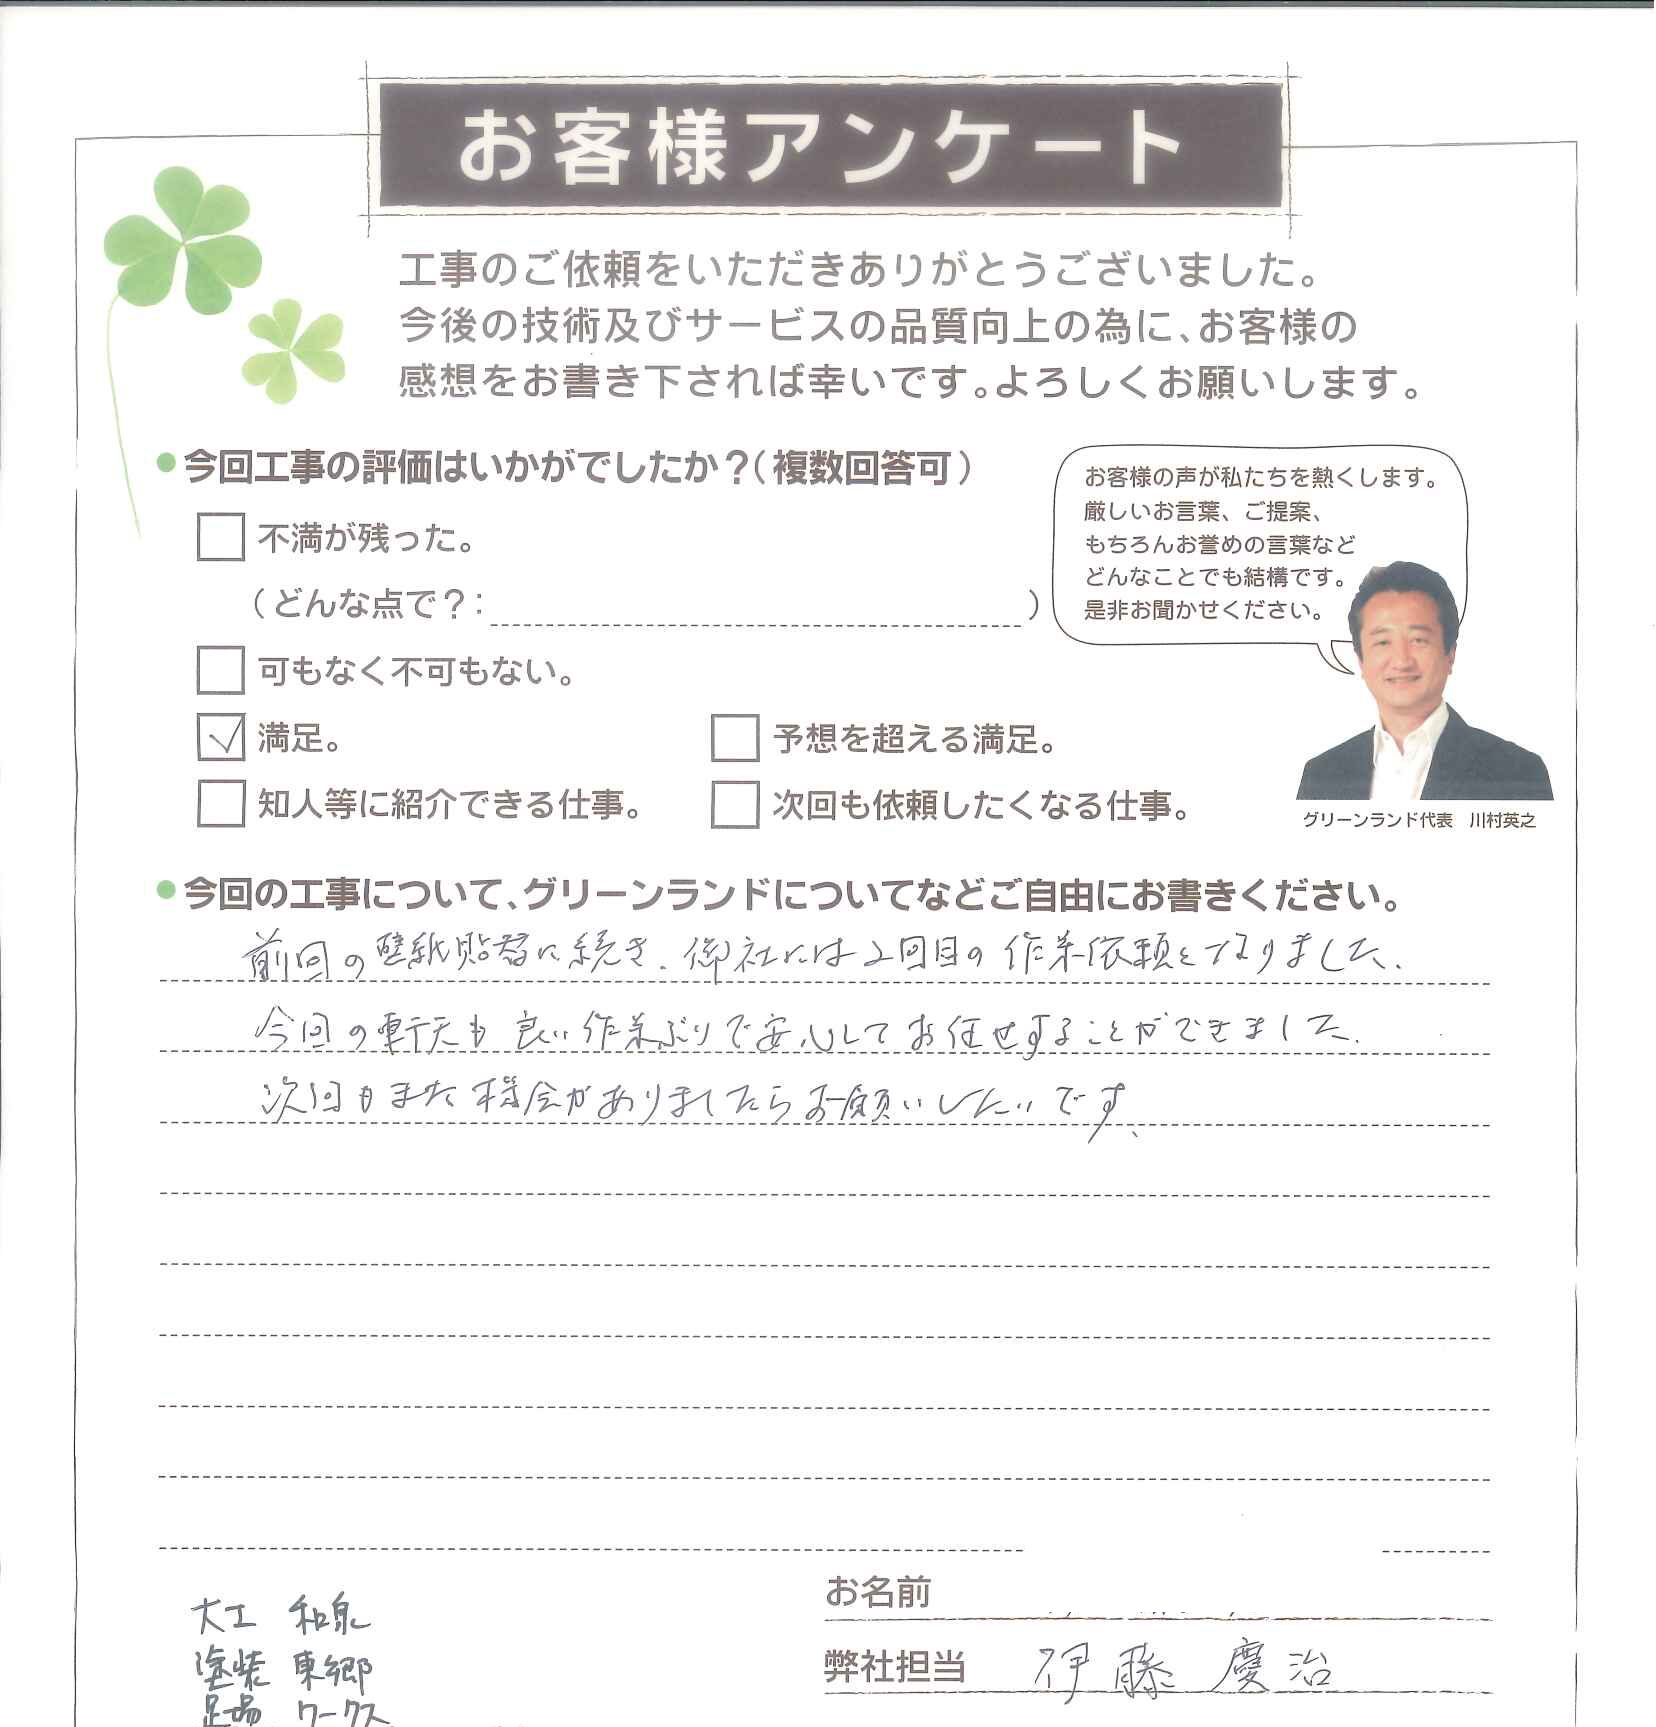 お客様アンケート
工事のご依頼をいただきありがとうございました。
今後の技術及びサービスの品質向上の為に、お客様の
感想をお書き下されば幸いです。よろしくお願いします。
今回工事の評価はいかがでしたか？（複数回答可）
不満が残った。
（どんな点で？：　）
可もなく不可もない。
満足。
予想を超える満足。
知人等に紹介できる仕事。
次回も依頼したくなる仕事。
お客様の声が私たちを熱くします。
厳しいお言葉、ご提案、
もちろんお誉めの言葉など
どんなことでも結構です。
是非お聞かせください。
グリーンランド代表　川村英之
今回の工事について、グリーンランドについてなどご自由にお書きください。
前回の壁紙貼替に続き、御社には2回目の作業依頼となりました。
今回の軒天も良い作業ぶりで安心してお任せすることができました。
次回もまた機会がありましたらお願いしたいです。
お名前
弊社担当　伊藤 慶治
大工　和泉
塗装　東郷
足場　ワークス